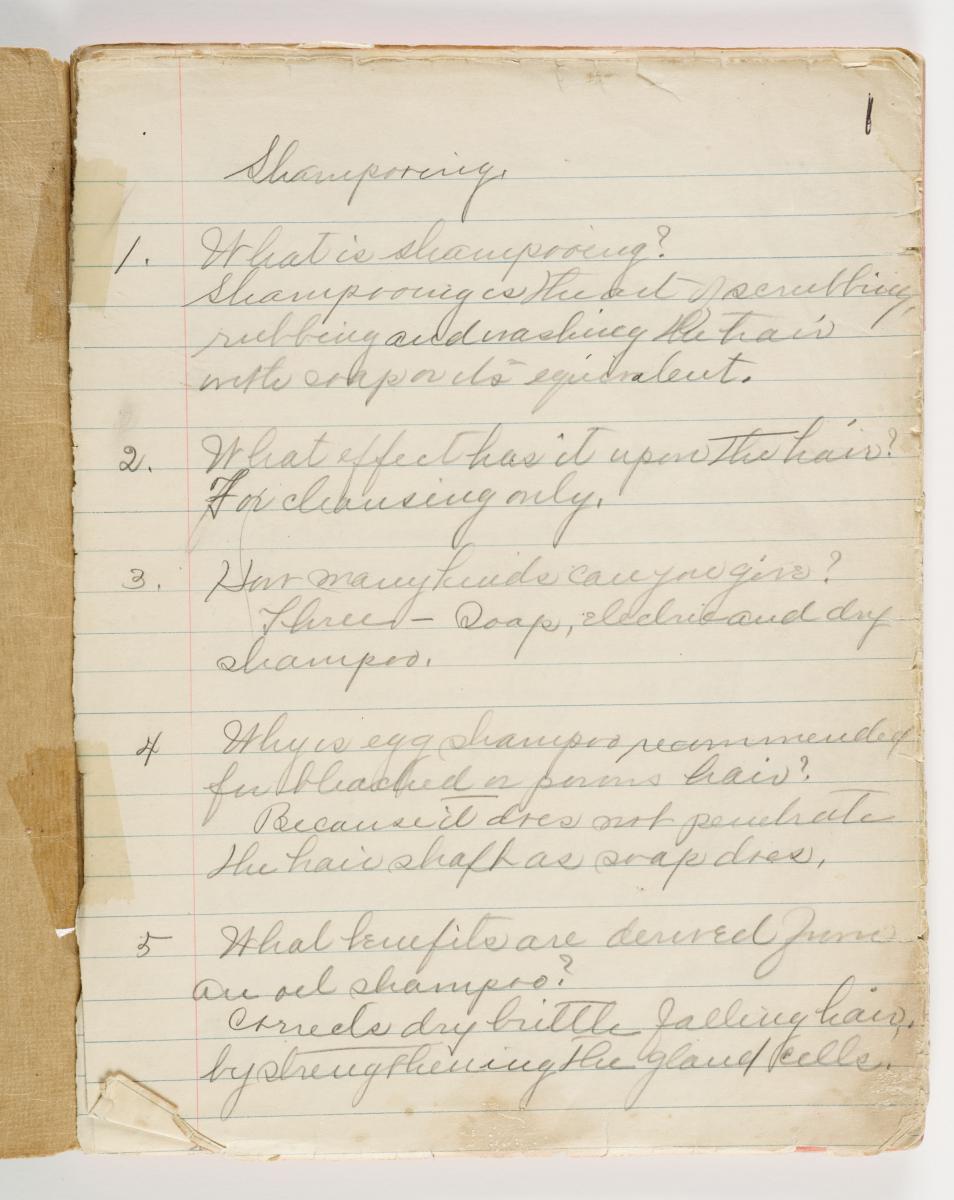 1
Shampooing.
1. What is shampooing?
Shampooing is the art of scrubbing,
rubbing and washing the hair
with soap or its equivalent.
2. What effect has it upon the hair?
For cleansing only.
3. How many kinds can you give?
Three - Soap, electric and dry
shampoo.
4 Why is egg shampoo recommended
for bleached or porous hair?
Because it does not penetrate
the hair shaft as soap does.
5 What benefits are derived from
an oil shampoo?
Corrects dry brittle falling hair,
by strengthening the gland cells.